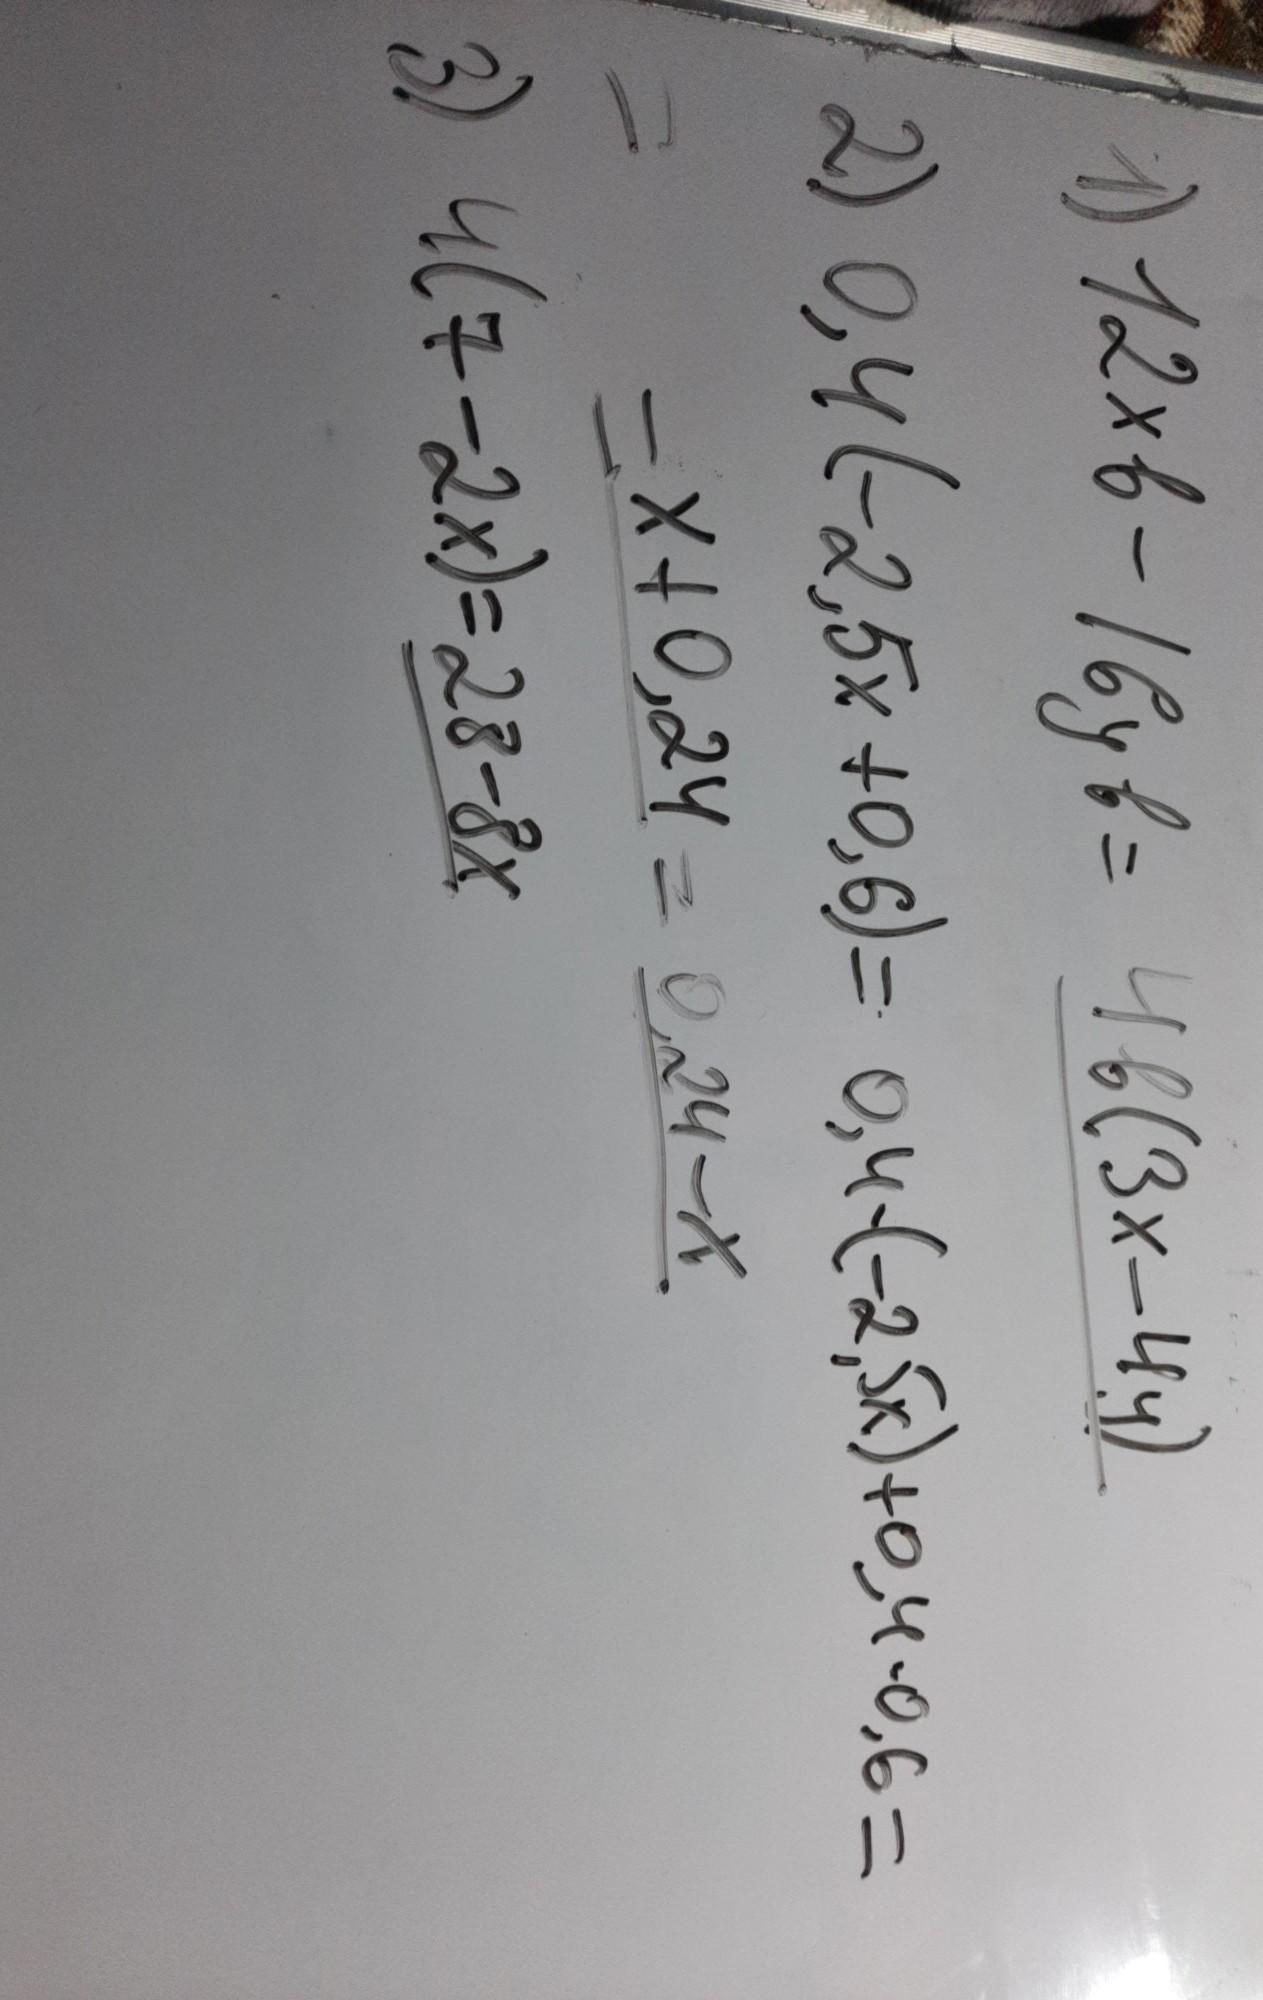 1) 12xb - 16yb = 4b(3x - 4y)
2) 0,4(-2,5x + 0,6) = 0,4·(-2,5x) + 0,4·0,6 =
= - x + 0,24 = 0,24 - x
3) 4(7 - 2x) = 28 - 8x